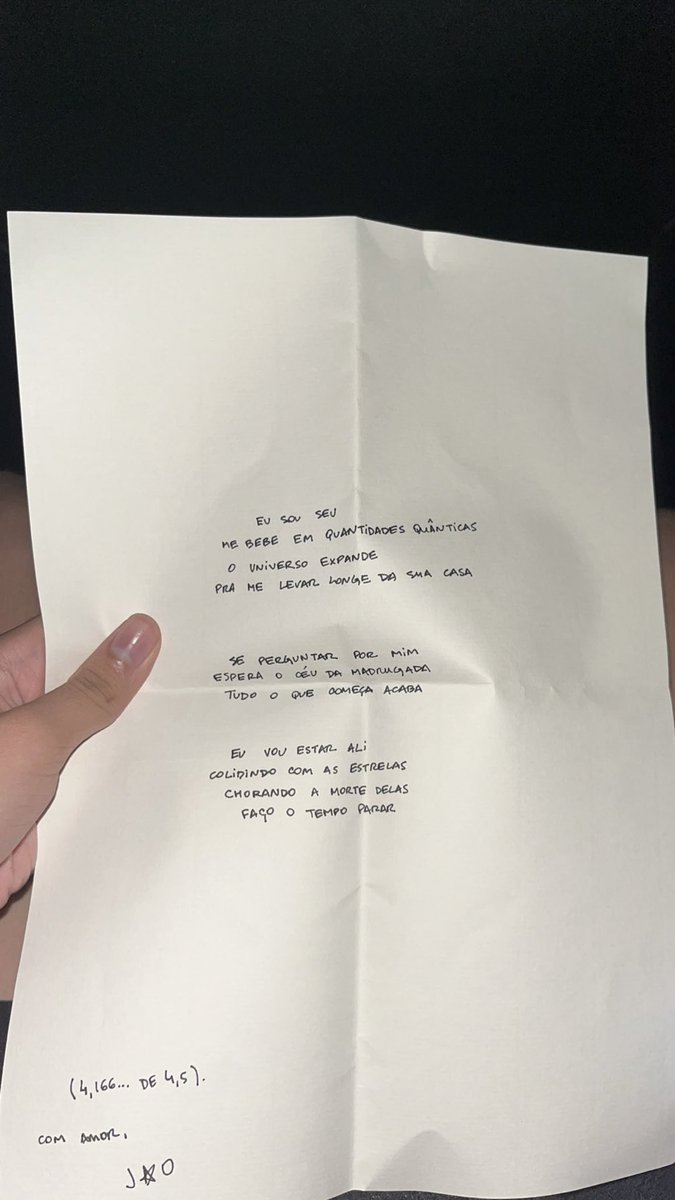 EU SOU SEU
ME BEBE EM QUANTIDADES QUÂNTICAS
O UNIVERSO EXPANDE
PRA ME LEVAR LONGE DA SUA CASA
SE PERGUNTAR POR MIM
ESPERA O CÉU DA MADRUGADA
TUDO O QUE COMEÇA ACABA
EU VOU ESTAR ALI
COLIDINDO COM AS ESTRELAS
CHORANDO A MORTE DELAS
FAÇO O TEMPO PARAR
(4,166... DE 4,5).
COM AMOR,
J☆O